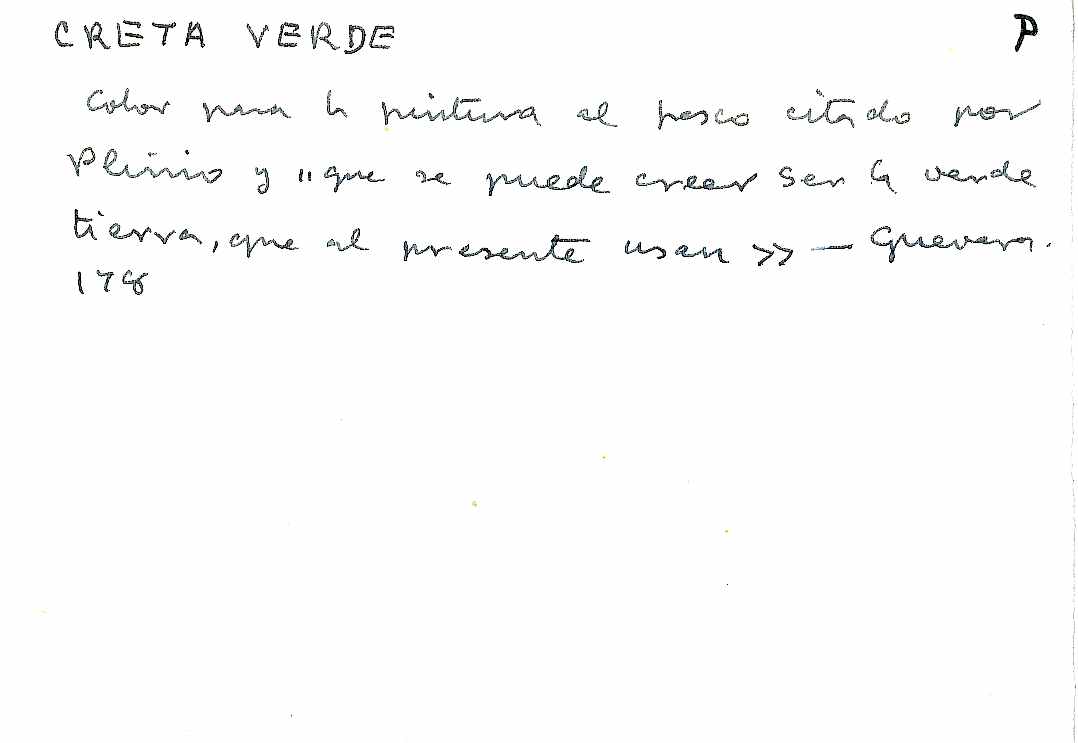 CRETA VERDE P
Color para la pintura al fresco citado por
Plinio y "que se puede creer ser la verde
tierra, que al presente usan >> — Guevara.
178